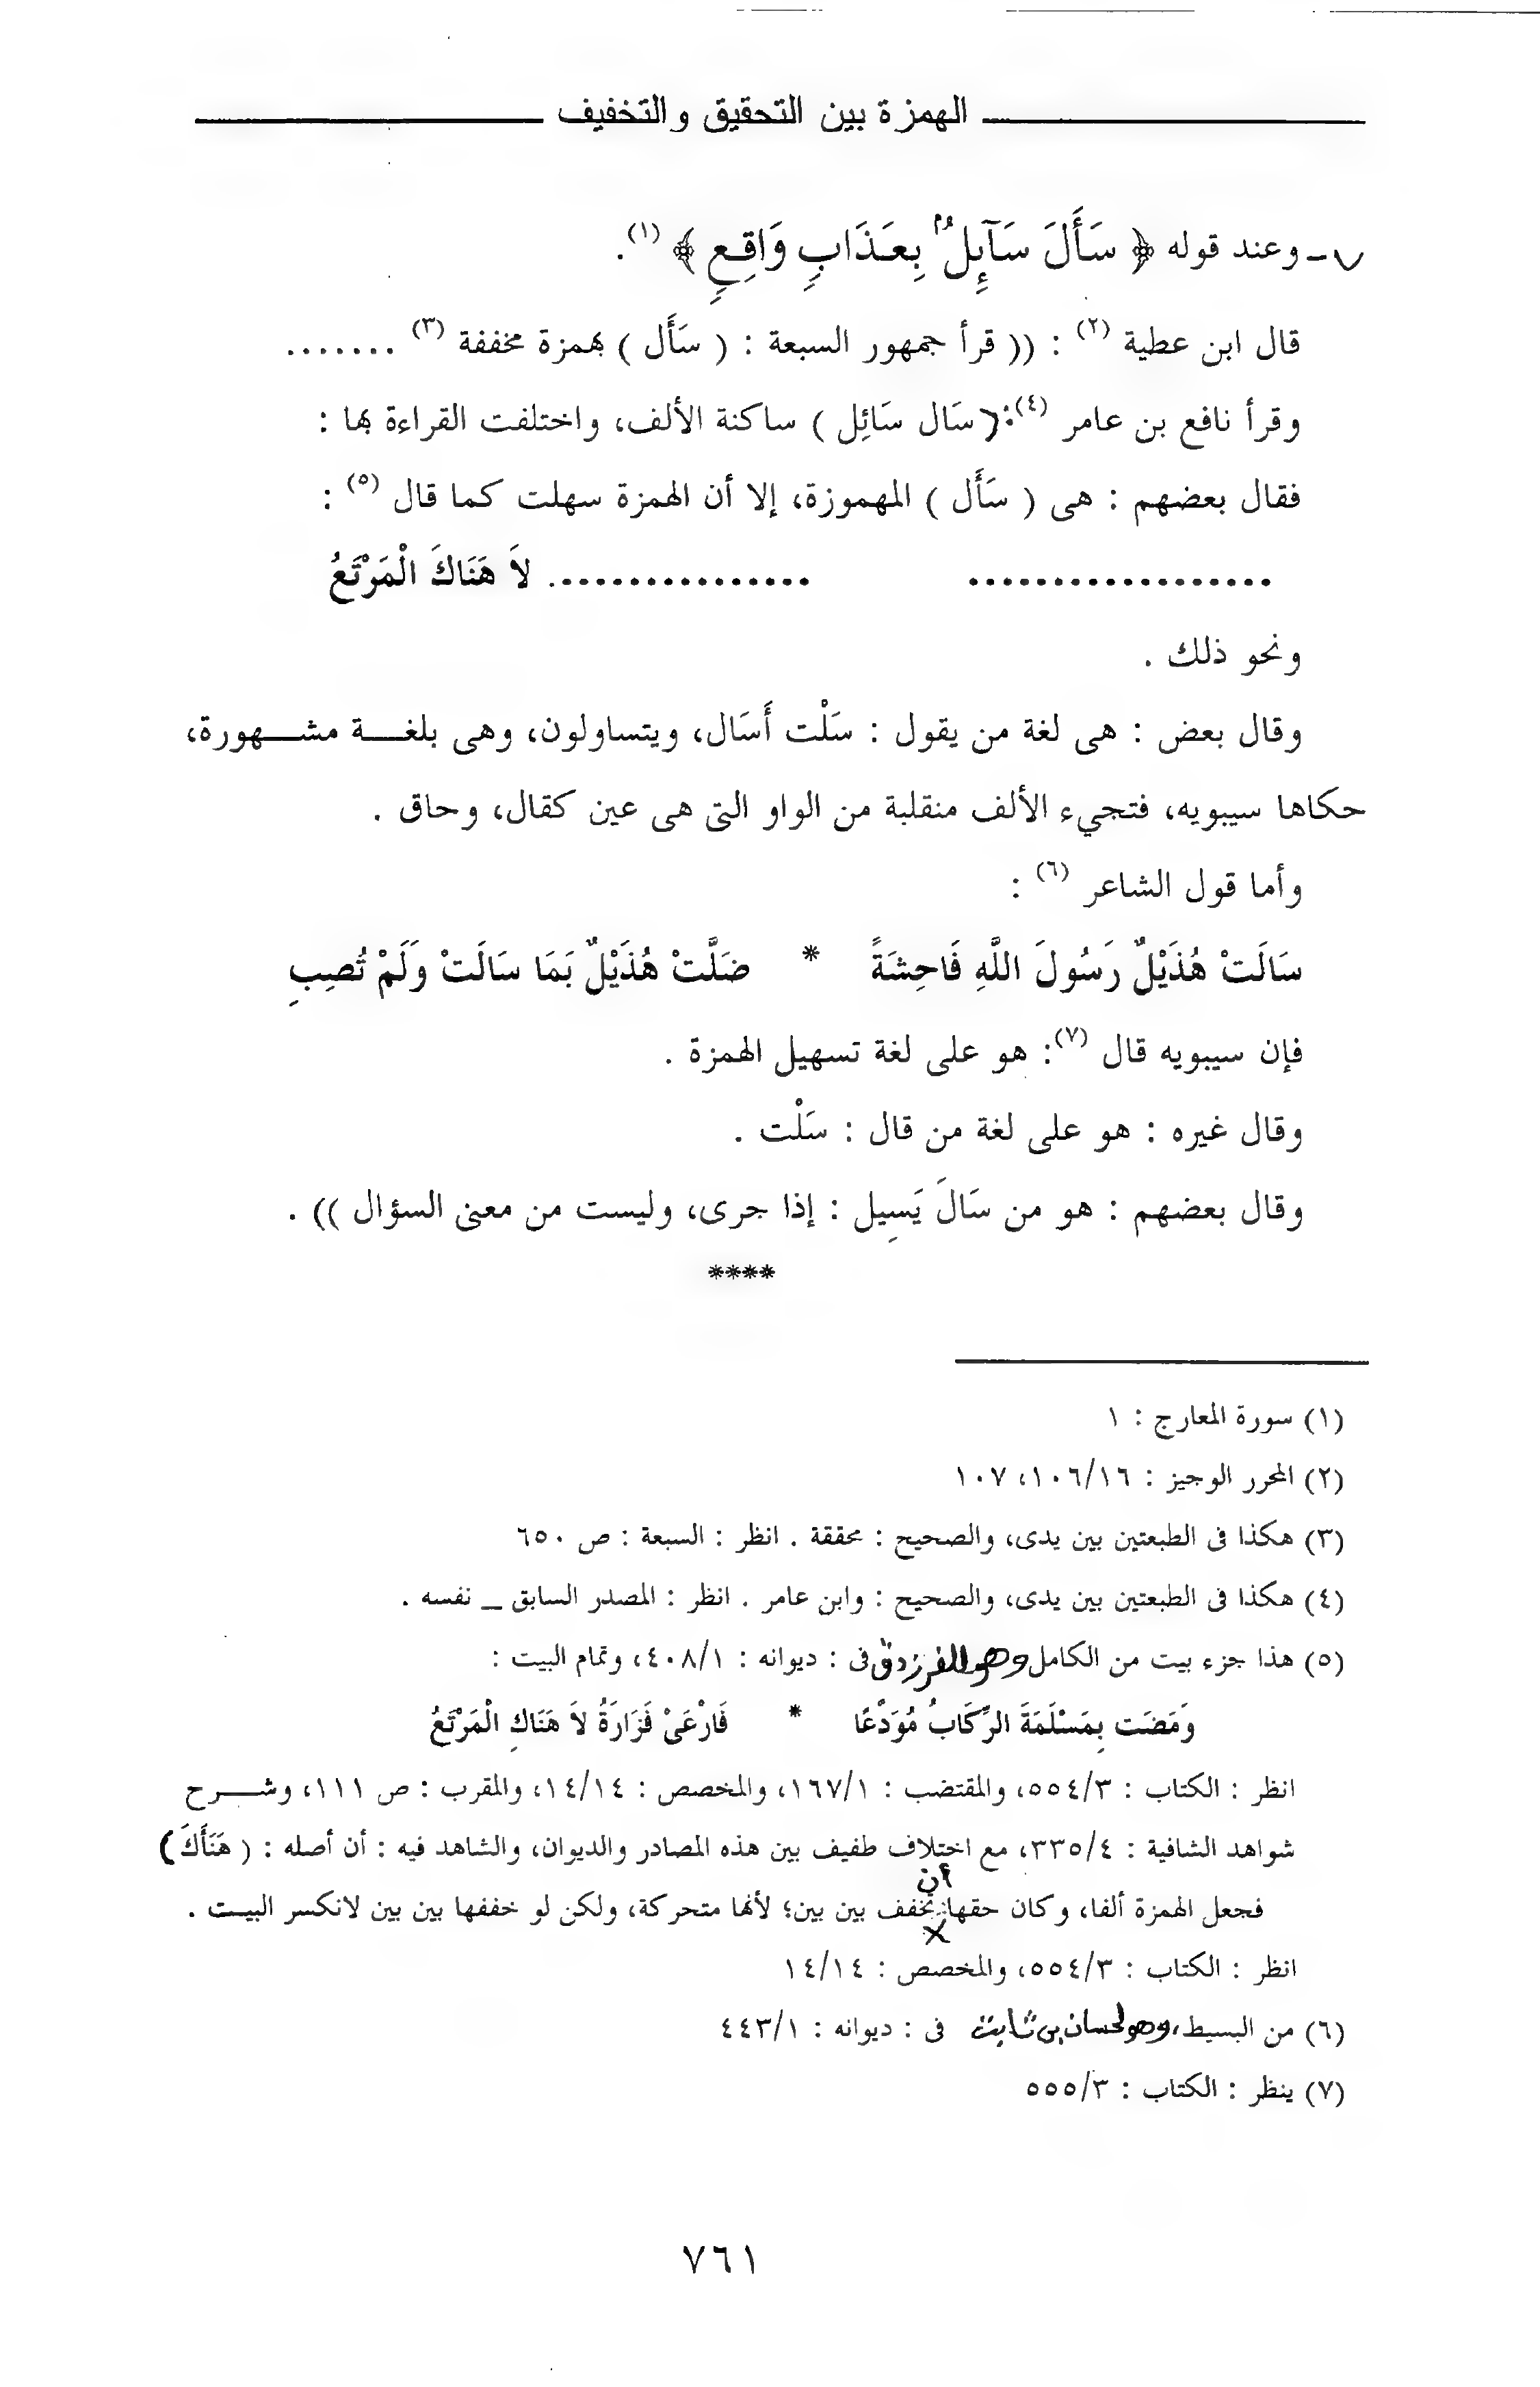 الهمزة بين التحقيق والتخفيف
٧ - وعند قوله ﴿ سَأَلَ سَآئِلٌۢ بِعَذَابٍ وَاقِعٍ ﴾ (١).
قال ابن عطية (٢) : (( قرأ جمهور السبعة : ( سَأَل ) بهمزة مخففة (٣) .......
وقرأ نافع بن عامر (٤): ( سَال سَائِل ) ساكنة الألف، واختلفت القراءة بها :
فقال بعضهم : هى ( سَأَل ) المهموزة، إلا أن الهمزة سهلت كما قال (٥) :
.................. ................ لاَ هَنَاكَ الْمَرْتَعُ
ونحو ذلك .
وقال بعض : هى لغة من يقول : سَلْت أَسَال، ويتساولون، وهى بلغة مشهورة،
حكاها سيبويه، فتجيء الألف منقلبة من الواو التى هى عين كقال، وحاق .
وأما قول الشاعر (٦) :
سَالَتْ هُذَيْلٌ رَسُولَ اللَّهِ فَاحِشَةً * ضَلَّتْ هُذَيْلٌ بَمَا سَالَتْ وَلَمْ تُصِبِ
فإن سيبويه قال (٧): هو على لغة تسهيل الهمزة .
وقال غيره : هو على لغة من قال : سَلْت .
وقال بعضهم : هو من سَالَ يَسِيل : إذا جرى، وليست من معنى السؤال )) .
****
(١) سورة المعارج : ١
(٢) المحرر الوجيز : ١٠٦/١٦، ١٠٧
(٣) هكذا فى الطبعتين بين يدى، والصحيح : محققة . انظر : السبعة : ص ٦٥٠
(٤) هكذا فى الطبعتين بين يدى، والصحيح : وابن عامر . انظر : المصدر السابق _ نفسه .
(٥) هذا جزء بيت من الكامل وهو للفرزدق فى : ديوانه : ٤٠٨/١، وتمام البيت :
وَمَضَت بِمَسْلَمَةَ الرِّكَابُ مُوَدَّعًا * فَارْعَىْ فَزَارَةُ لاَ هَنَاكِ الْمَرْتَعُ
انظر : الكتاب : ٥٥٤/٣، والمقتضب : ١٦٧/١، والمخصص : ١٤/١٤، والمقرب : ص ١١١، وشرح
شواهد الشافية : ٣٣٥/٤، مع اختلاف طفيف بين هذه المصادر والديوان، والشاهد فيه : أن أصله : ( هَنَأَكَ )
فجعل الهمزة ألفا، وكان حقها أن تخفف بين بين؛ لأنها متحركة، ولكن لو خففها بين بين لانكسر البيت .
انظر : الكتاب : ٥٥٤/٣، والمخصص : ١٤/١٤
(٦) من البسيط، وهو لحسان بن ثابت فى : ديوانه : ٤٤٣/١
(٧) ينظر : الكتاب : ٥٥٥/٣
٧٦١